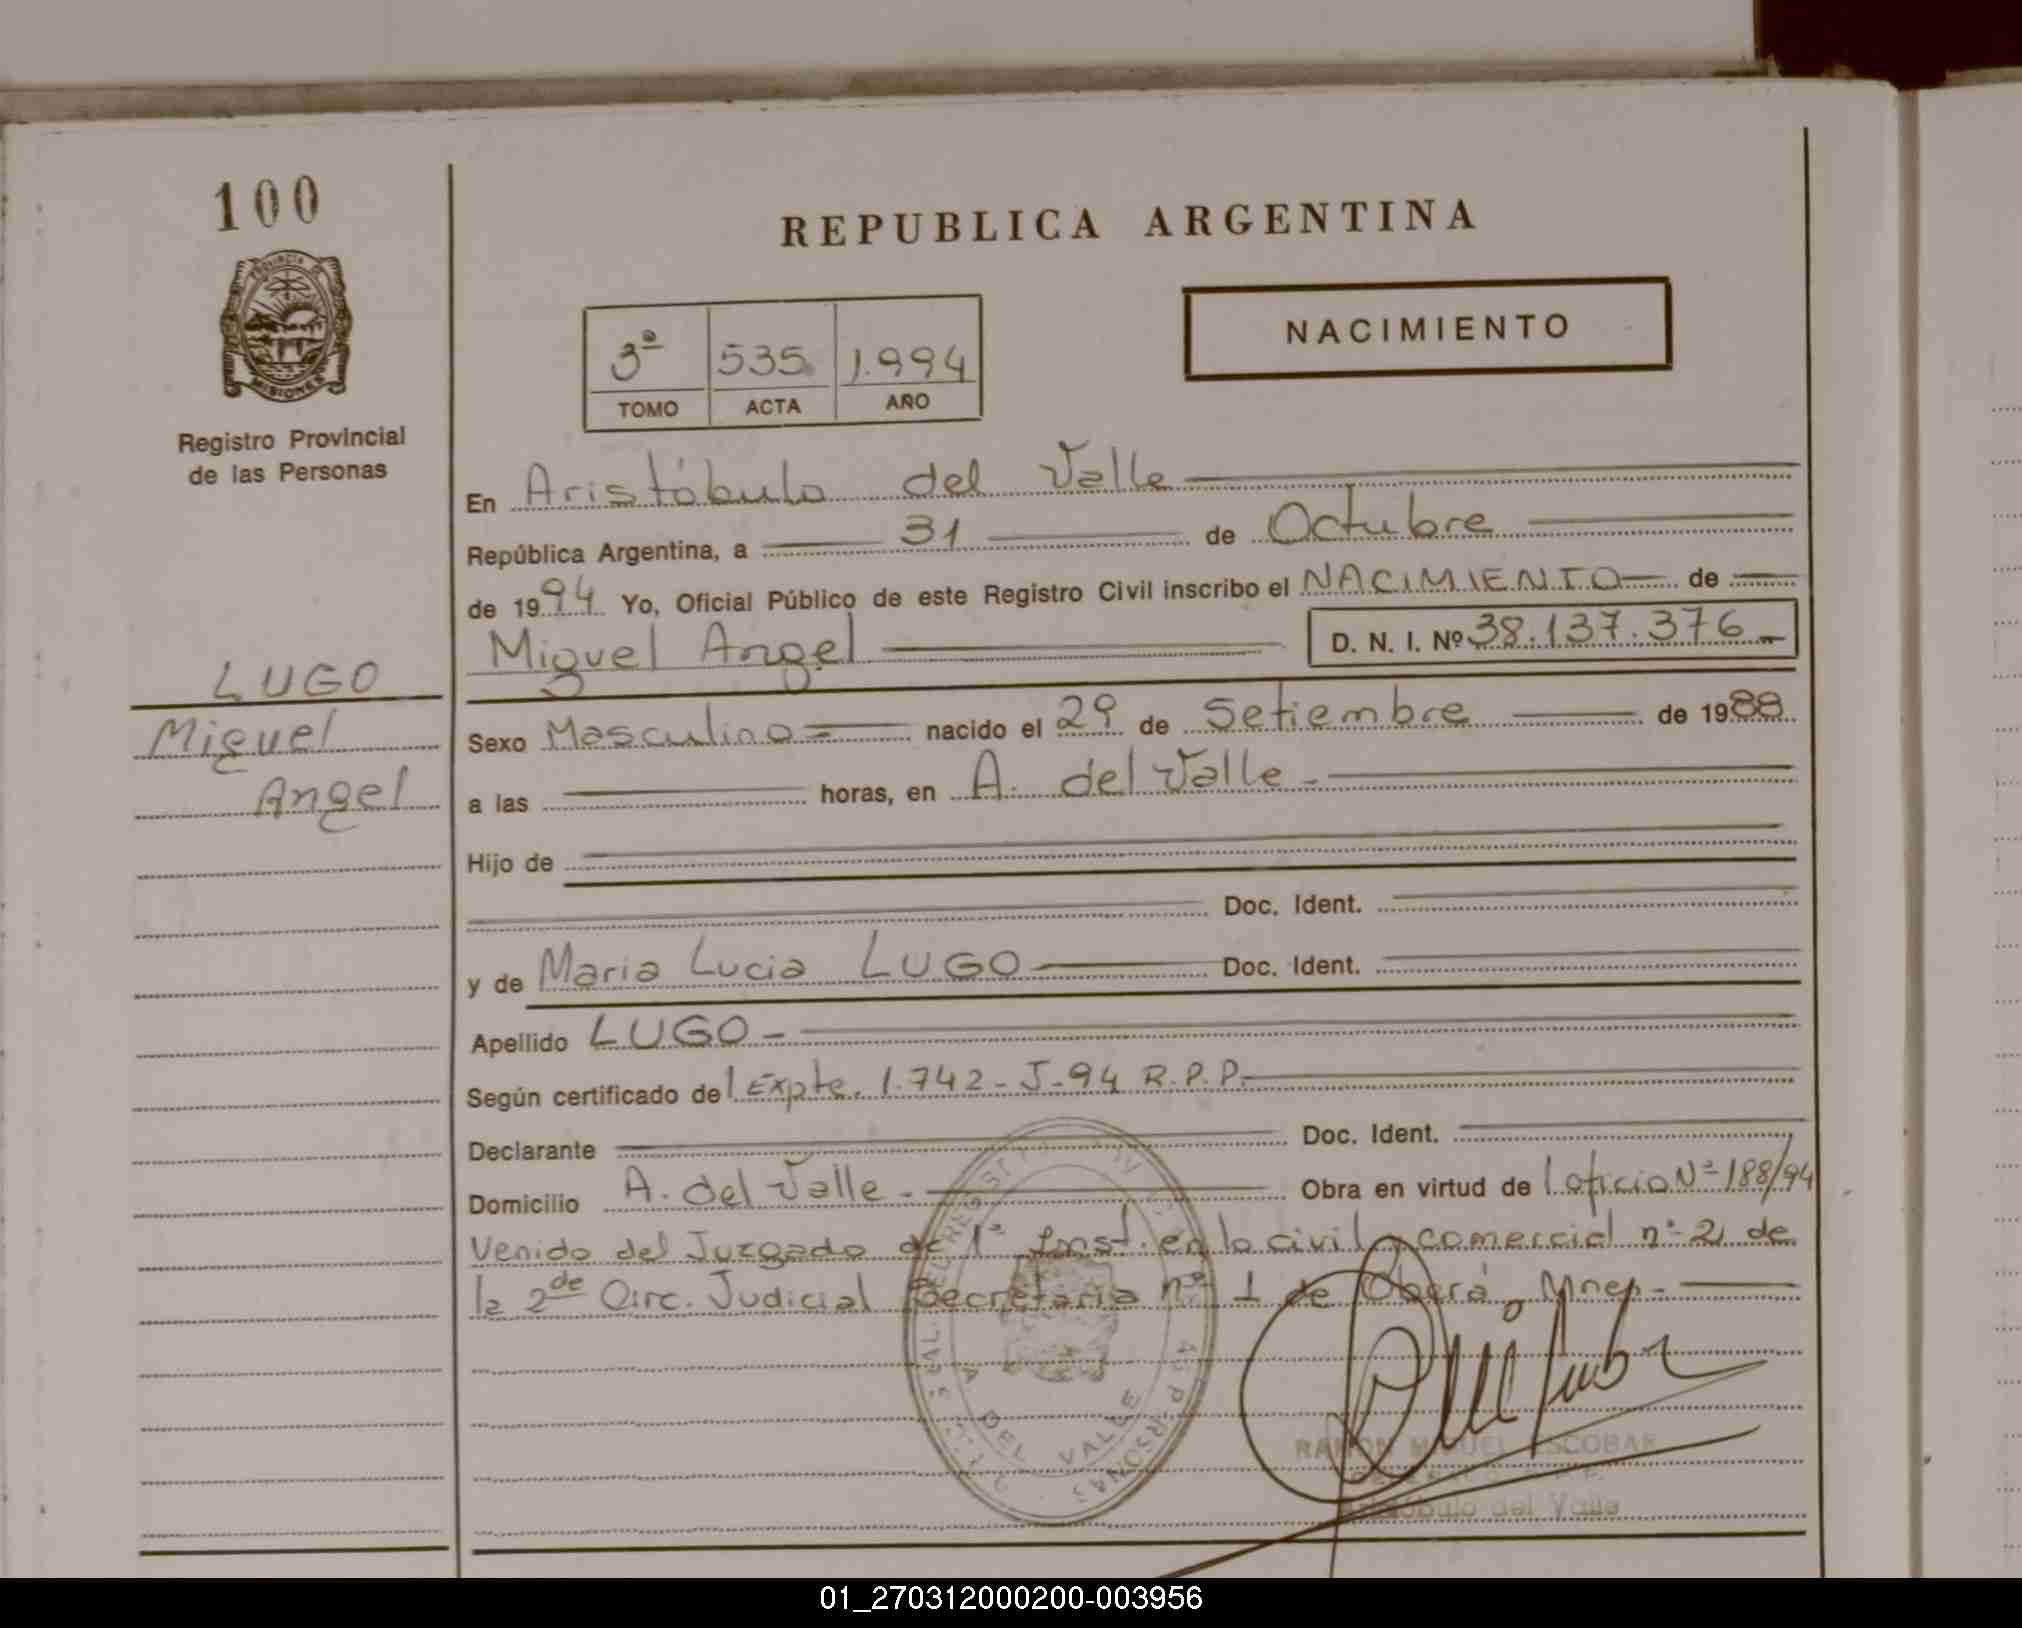 100
PROVINCIA DE
MISIONES
Registro Provincial
de las Personas
LUGO
Miguel
Angel
REPUBLICA ARGENTINA
3ª 535 1.994
TOMO ACTA AÑO
NACIMIENTO
En Aristóbulo del Valle
República Argentina, a 31 de Octubre
de 1994 Yo, Oficial Público de este Registro Civil inscribo el NACIMIENTO de
Miguel Angel D. N. I. Nº 38.137.376
Sexo Masculino nacido el 29 de Setiembre de 1988
a las horas, en A. del Valle
Hijo de
Doc. Ident.
y de Maria Lucia LUGO Doc. Ident.
Apellido LUGO
Según certificado de Expte. 1.742-J-94 R.P.P.
Declarante Doc. Ident.
Domicilio A. del Valle Obra en virtud de oficio Nº 188/94
Venido del Juzgado de 1ª Inst. en lo civil y comercial nº 2 de
la 2de Circ. Judicial Secretaria nº 1 de Oberá, Mnes
A DEL VALLE
RAMON MIGUEL ESCOBAR
Aristóbulo del Valle
01_270312000200-003956